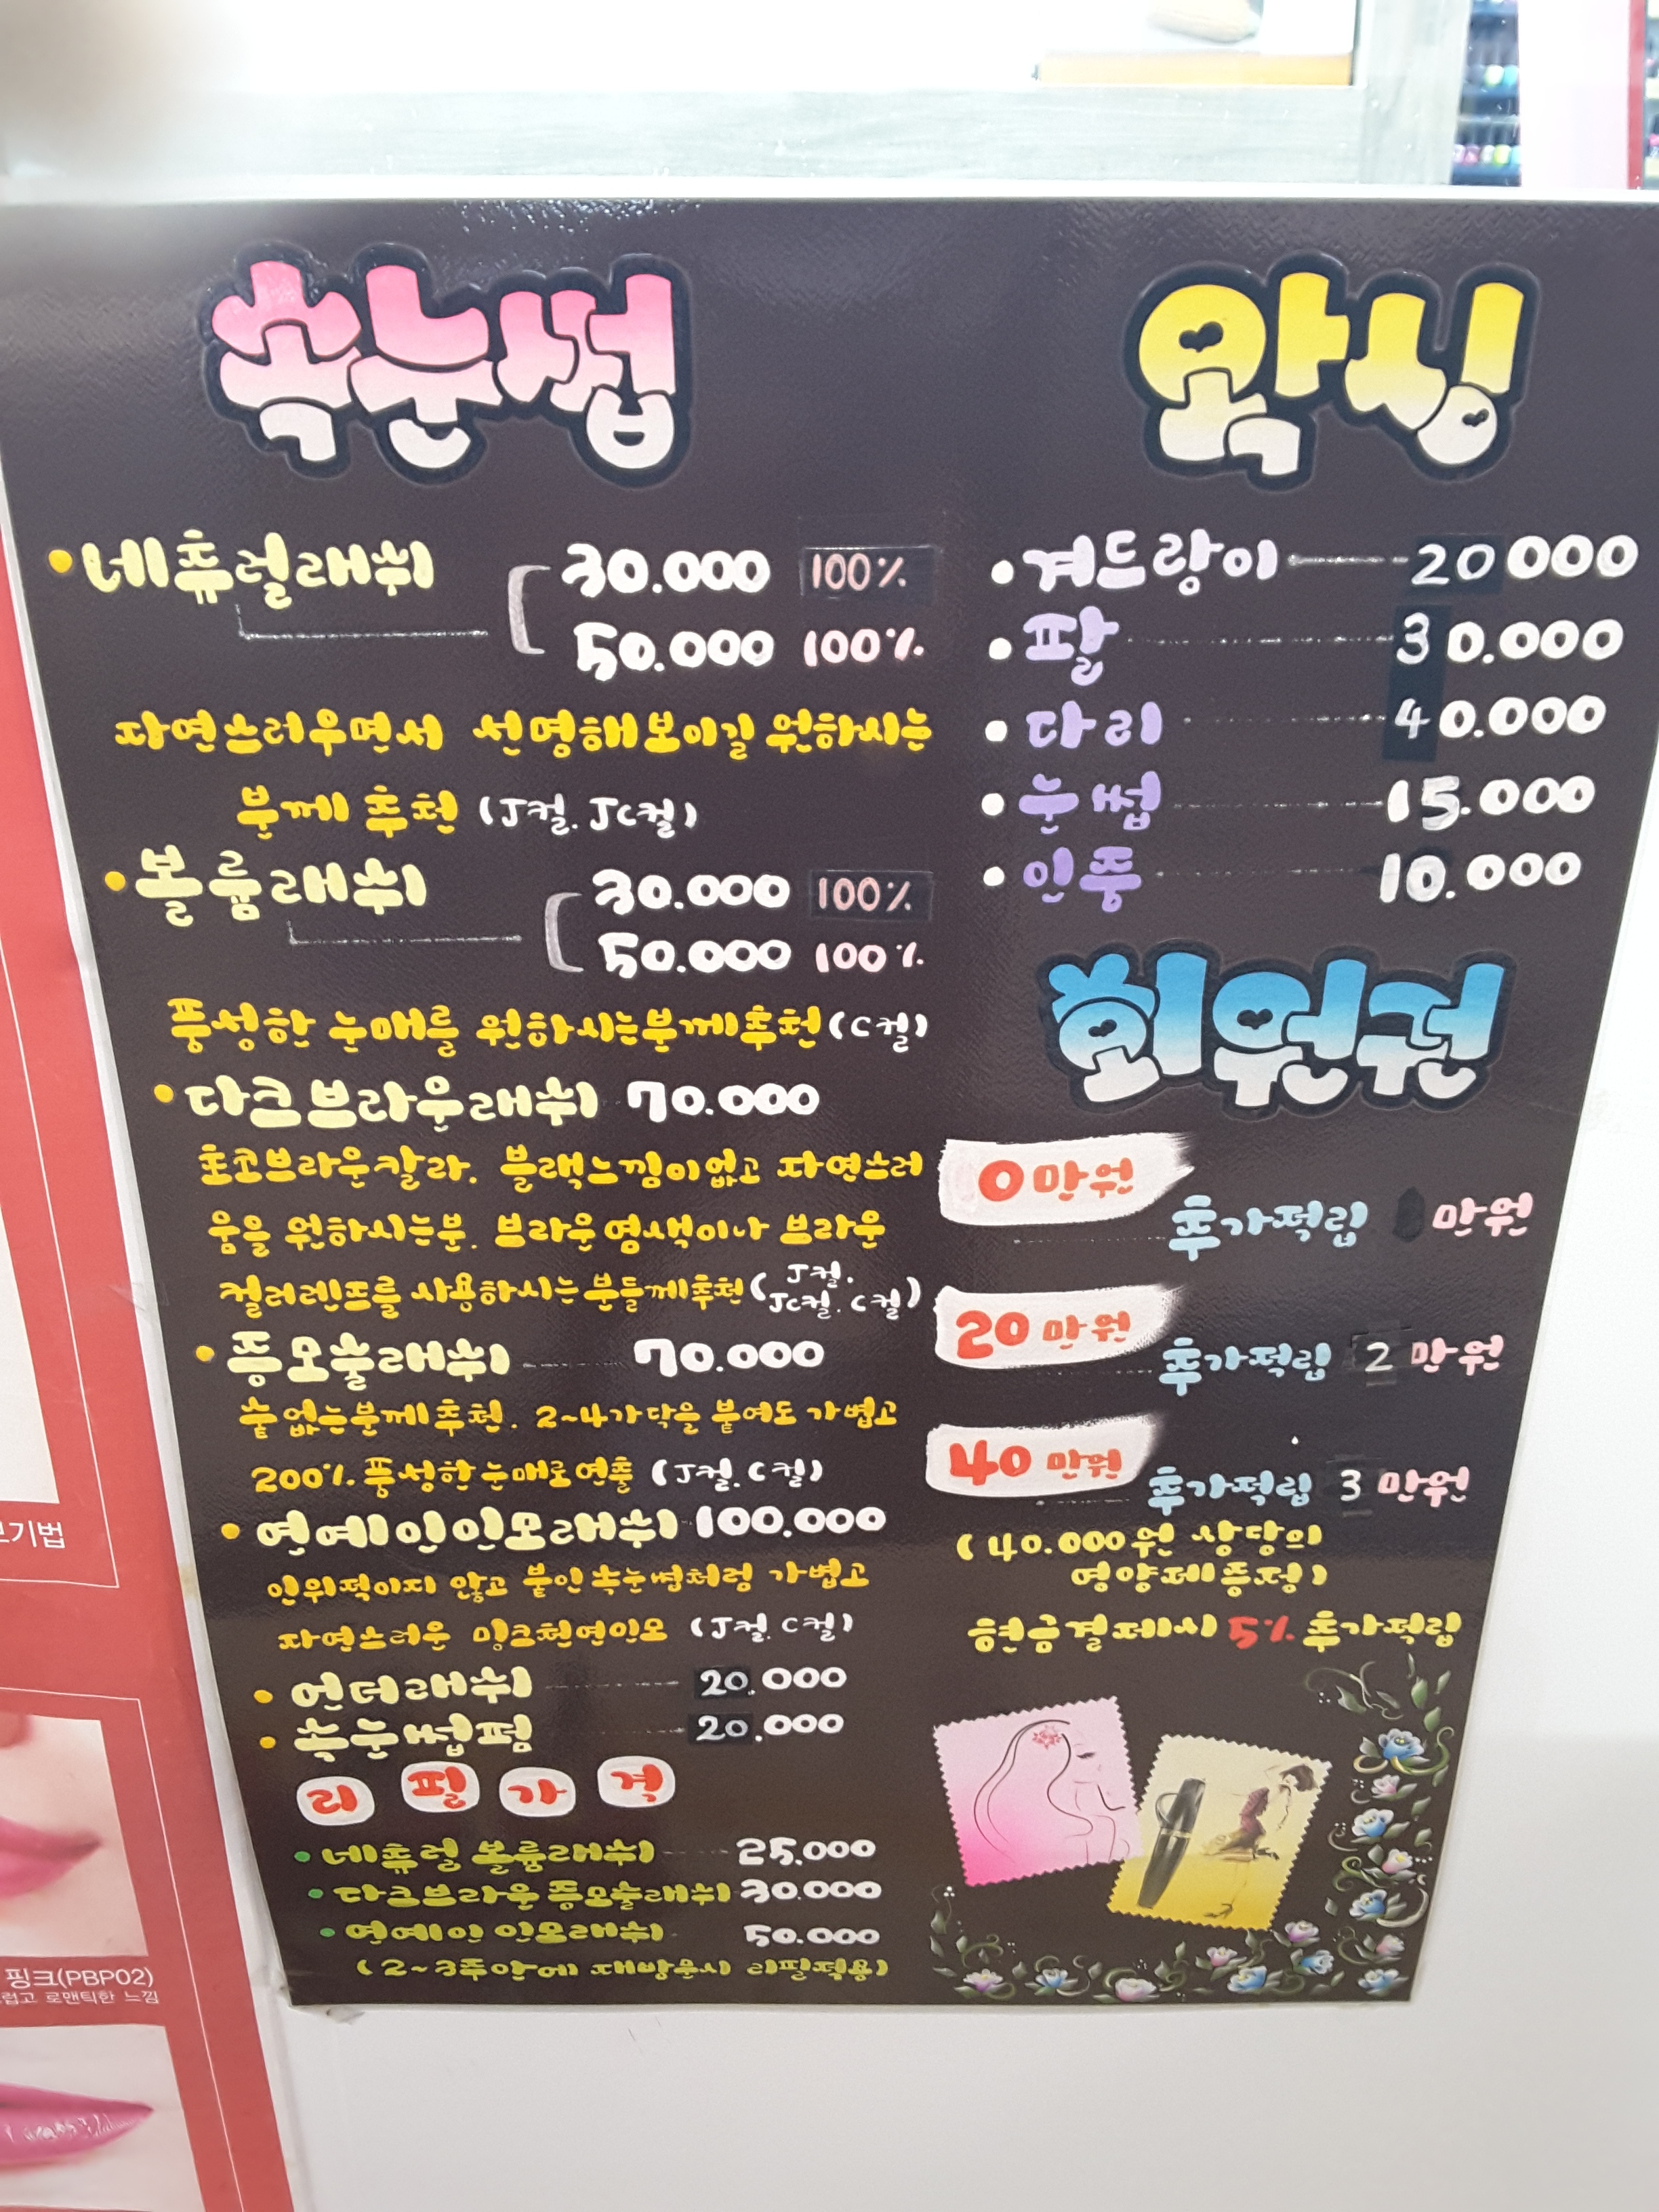 속눈썹
네츄럴래쉬 30.000 100%
50.000 100%
자연스러우면서 선명해보이길 원하시는
분께 추천 (J컬. JC컬)
볼륨래쉬 30.000 100%
50.000 100%
풍성한 눈매를 원하시는분께추천(C컬)
다크브라운래쉬 70.000
초코브라운칼라. 블랙느낌이없고 자연스러
움을 원하시는분. 브라운염색이나 브라운
컬러렌즈를 사용하시는분들께추천(J컬.
JC컬. C컬)
증모술래쉬 70.000
숱없는분께추천. 2~4가닥을 붙여도 가볍고
200% 풍성한눈매로연출 (J컬. C컬)
연예인인모래쉬 100.000
인위적이지 않고 붙인속눈썹처럼 가볍고
자연스러운 밍크천연인모 (J컬. C컬)
언더래쉬 20.000
속눈썹펌 20.000
리필가격
네츄럴 볼륨래쉬 25.000
다크브라운증모술래쉬 30.000
연예인 인모래쉬 50.000
(2~3주안에 재방문시 리필적용)
왁싱
겨드랑이 20000
팔 30.000
다리 40.000
눈썹 15.000
인중 10.000
회원권
0만원
추가적립 만원
20만원
추가적립 2만원
40만원
추가적립 3만원
(40.000원 상당의
영양제증정)
현금결제시 5% 추가적립
기법
핑크(PBP02)
럽고 로맨틱한 느낌